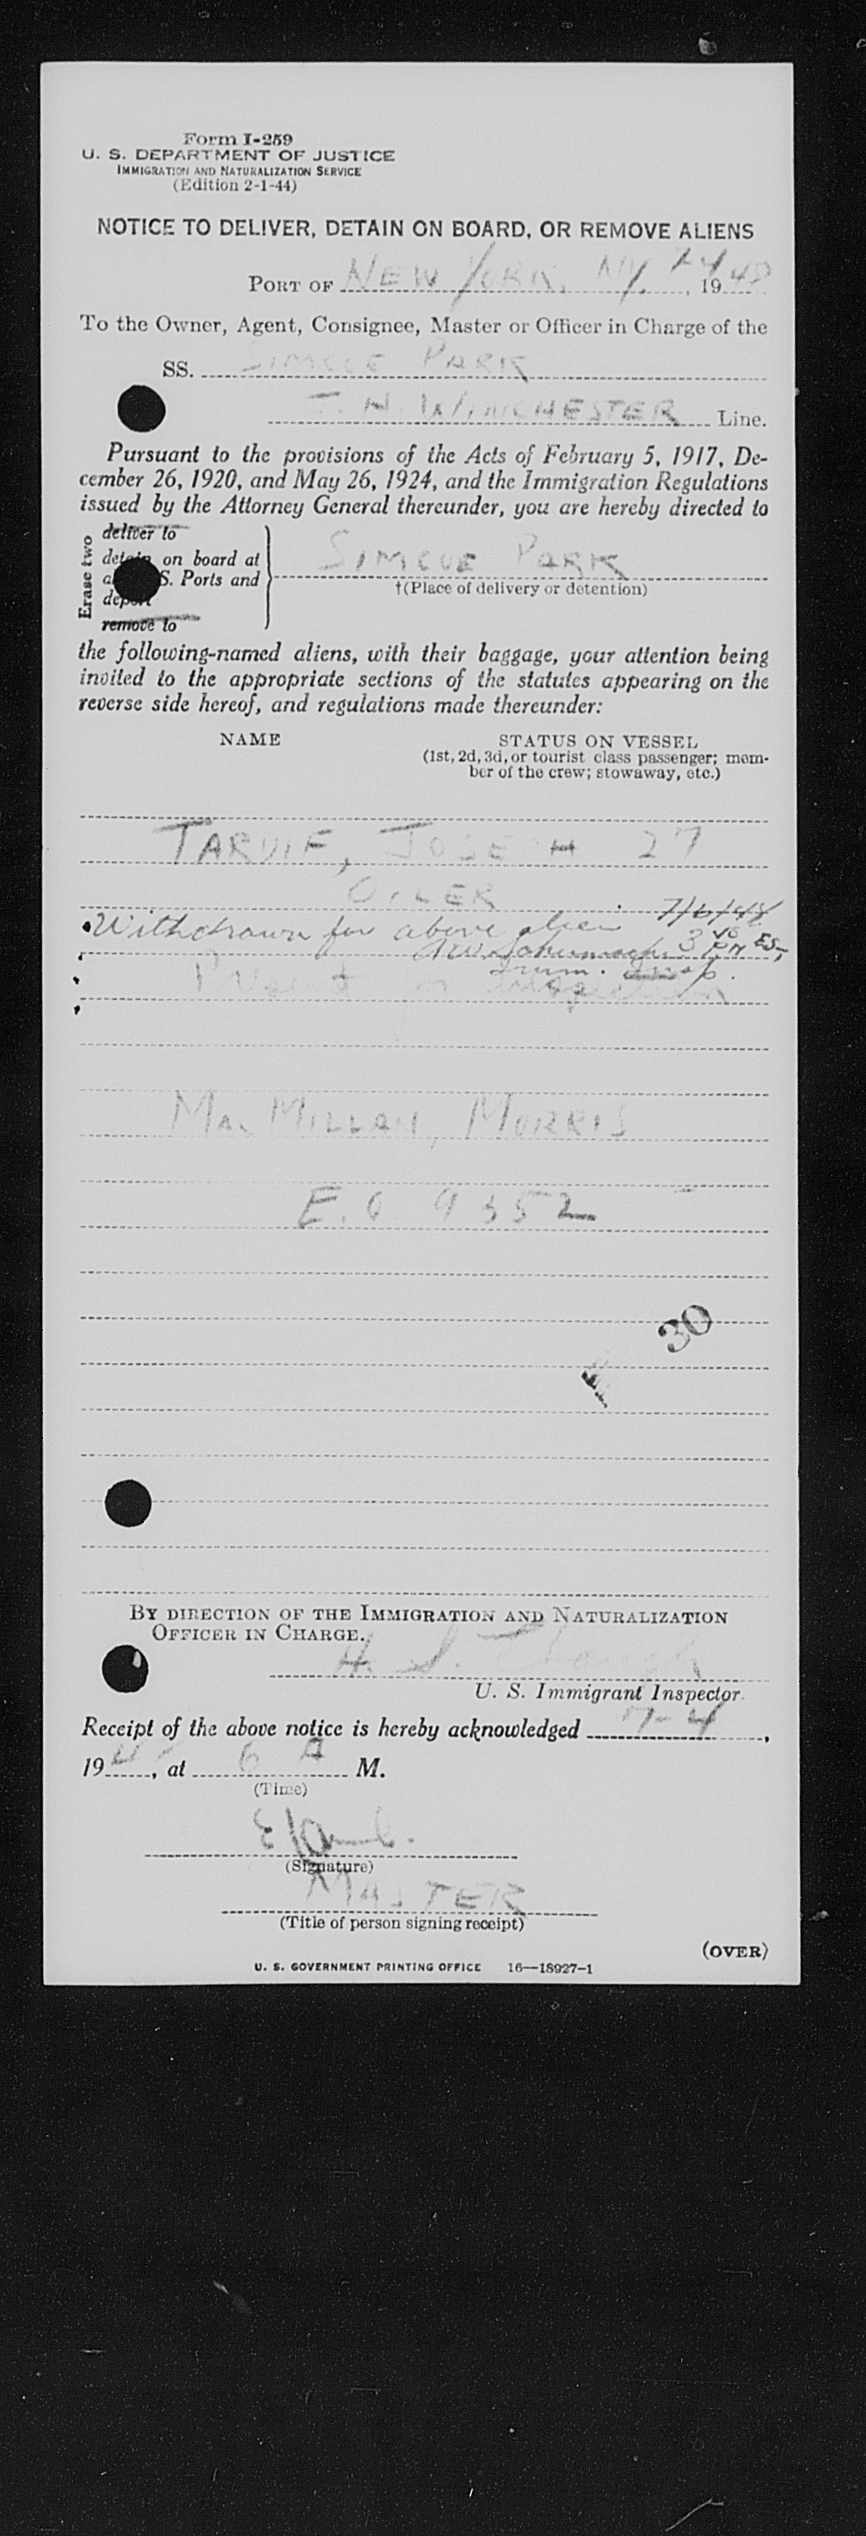 Form I-259
U. S. DEPARTMENT OF JUSTICE
IMMIGRATION AND NATURALIZATION SERVICE
(Edition 2-1-44)
NOTICE TO DELIVER, DETAIN ON BOARD, OR REMOVE ALIENS
PORT OF NEW YORK, NY. 7-4 1948
To the Owner, Agent, Consignee, Master or Officer in Charge of the
SS. SIMCOE PARK
T. H. WINCHESTER Line.
Pursuant to the provisions of the Acts of February 5, 1917, De-
cember 26, 1920, and May 26, 1924, and the Immigration Regulations
issued by the Attorney General thereunder, you are hereby directed to
Erase two
deliver to
detain on board at
S. Ports and
deport
remove to
SIMCOE PARK
†(Place of delivery or detention)
the following-named aliens, with their baggage, your attention being
invited to the appropriate sections of the statutes appearing on the
reverse side hereof, and regulations made thereunder:
NAME
STATUS ON VESSEL
(1st, 2d, 3d, or tourist class passenger; mem-
ber of the crew; stowaway, etc.)
TARDIF, JOSEPH 27
OILER
Withdrawn for above alien 7/6/48
3 40 PM EST,
Imm. Insp.
MacMILLAN, MORRIS
E.O 9352
30
BY DIRECTION OF THE IMMIGRATION AND NATURALIZATION
OFFICER IN CHARGE.
H. S.
U. S. Immigrant Inspector.
Receipt of the above notice is hereby acknowledged 7-4,
194, at 6 A M.
(Time)
(Signature)
MASTER
(Title of person signing receipt)
(OVER)
U. S. GOVERNMENT PRINTING OFFICE 16—18927-1